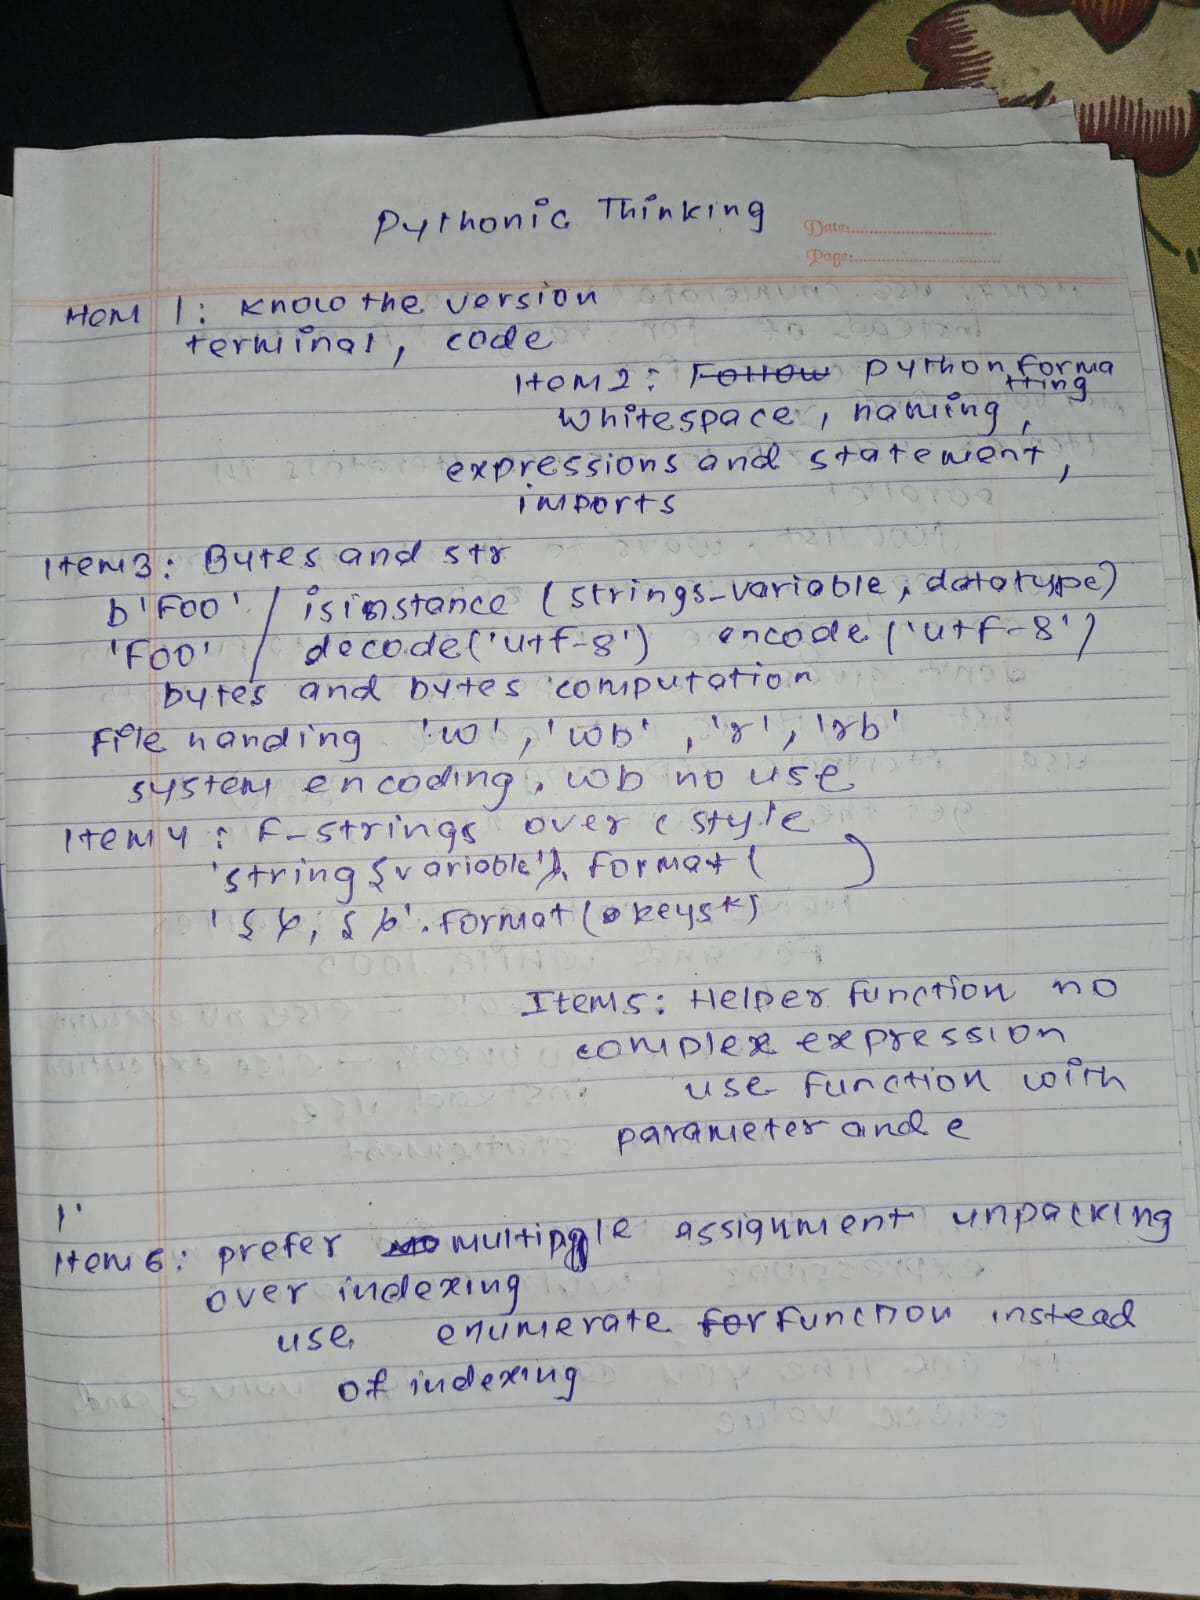 Pythonic Thinking
Date:
Page:
Item 1: Know the version
terminal, code
Item 2: Follow python formatting
whitespace, naming,
expressions and statement,
imports
Item3: Bytes and str
b'Foo' / isinstance (strings_variable, datatype)
'Foo' / decode('utf-8') encode ('utf-8')
bytes and bytes computation
File handing 'w', 'wb', 'r', 'rb'
system encoding, wb no use
Item 4: F-strings over c style
'string {variable}'. format ( )
.format(
Item5: Helper function no
complex expression
use function with
parameter and e
Item 6: prefer multiple assignment unpacking
over indexing
use enumerate for function instead
of indexing